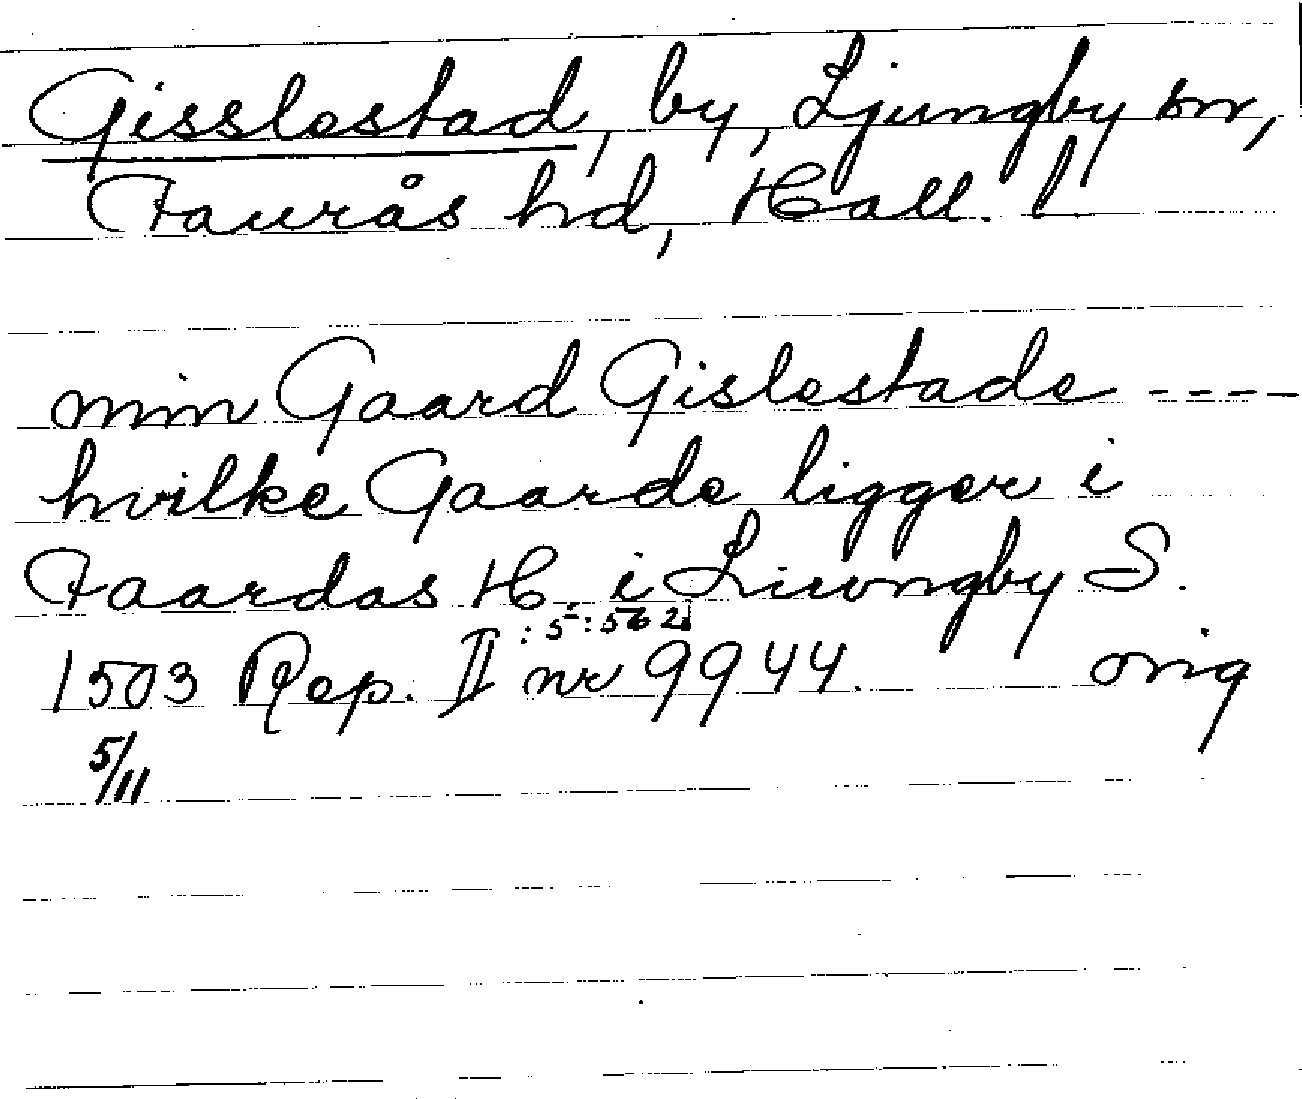 Gisslestad, by, Ljungby sn,
Faurås hd, Hall. l
min Gaard Gislestade ----
hvilke Gaarde ligger i
Faardas H. i Liwngby S.
: 5 : 562
1503 Rep. II nr 9944. orig
5/11